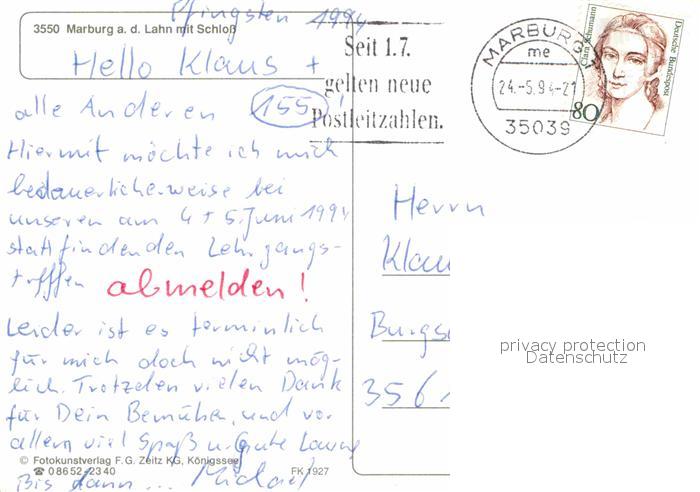 Pfingsten 1994
3550 Marburg a. d. Lahn mit Schloß
Hello Klaus +
alle Anderen 155 !
Hiermit möchte ich mich
bedauerlicherweise bei
unseren am 4 + 5. Juni 1994
stattfindenden Lehrgangs-
treffen abmelden!
Leider ist es terminlich
für mich doch nicht mög-
lich. Trotzden vielen Dank
für Dein Bemühen, und vor
allem viel Spaß u. Gute Laune
Bis dann ... Michael
© Fotokunstverlag F. G. Zeitz KG, Königssee
☎ 08652-2340
FK 1927
Seit 1.7.
gelten neue
Postleitzahlen.
MARBURG
me
24.-5.94-21
35039
Clara Schumann
Deutsche Bundespost
80
Herrn
Klau
Burgs
356
privacy protection
Datenschutz